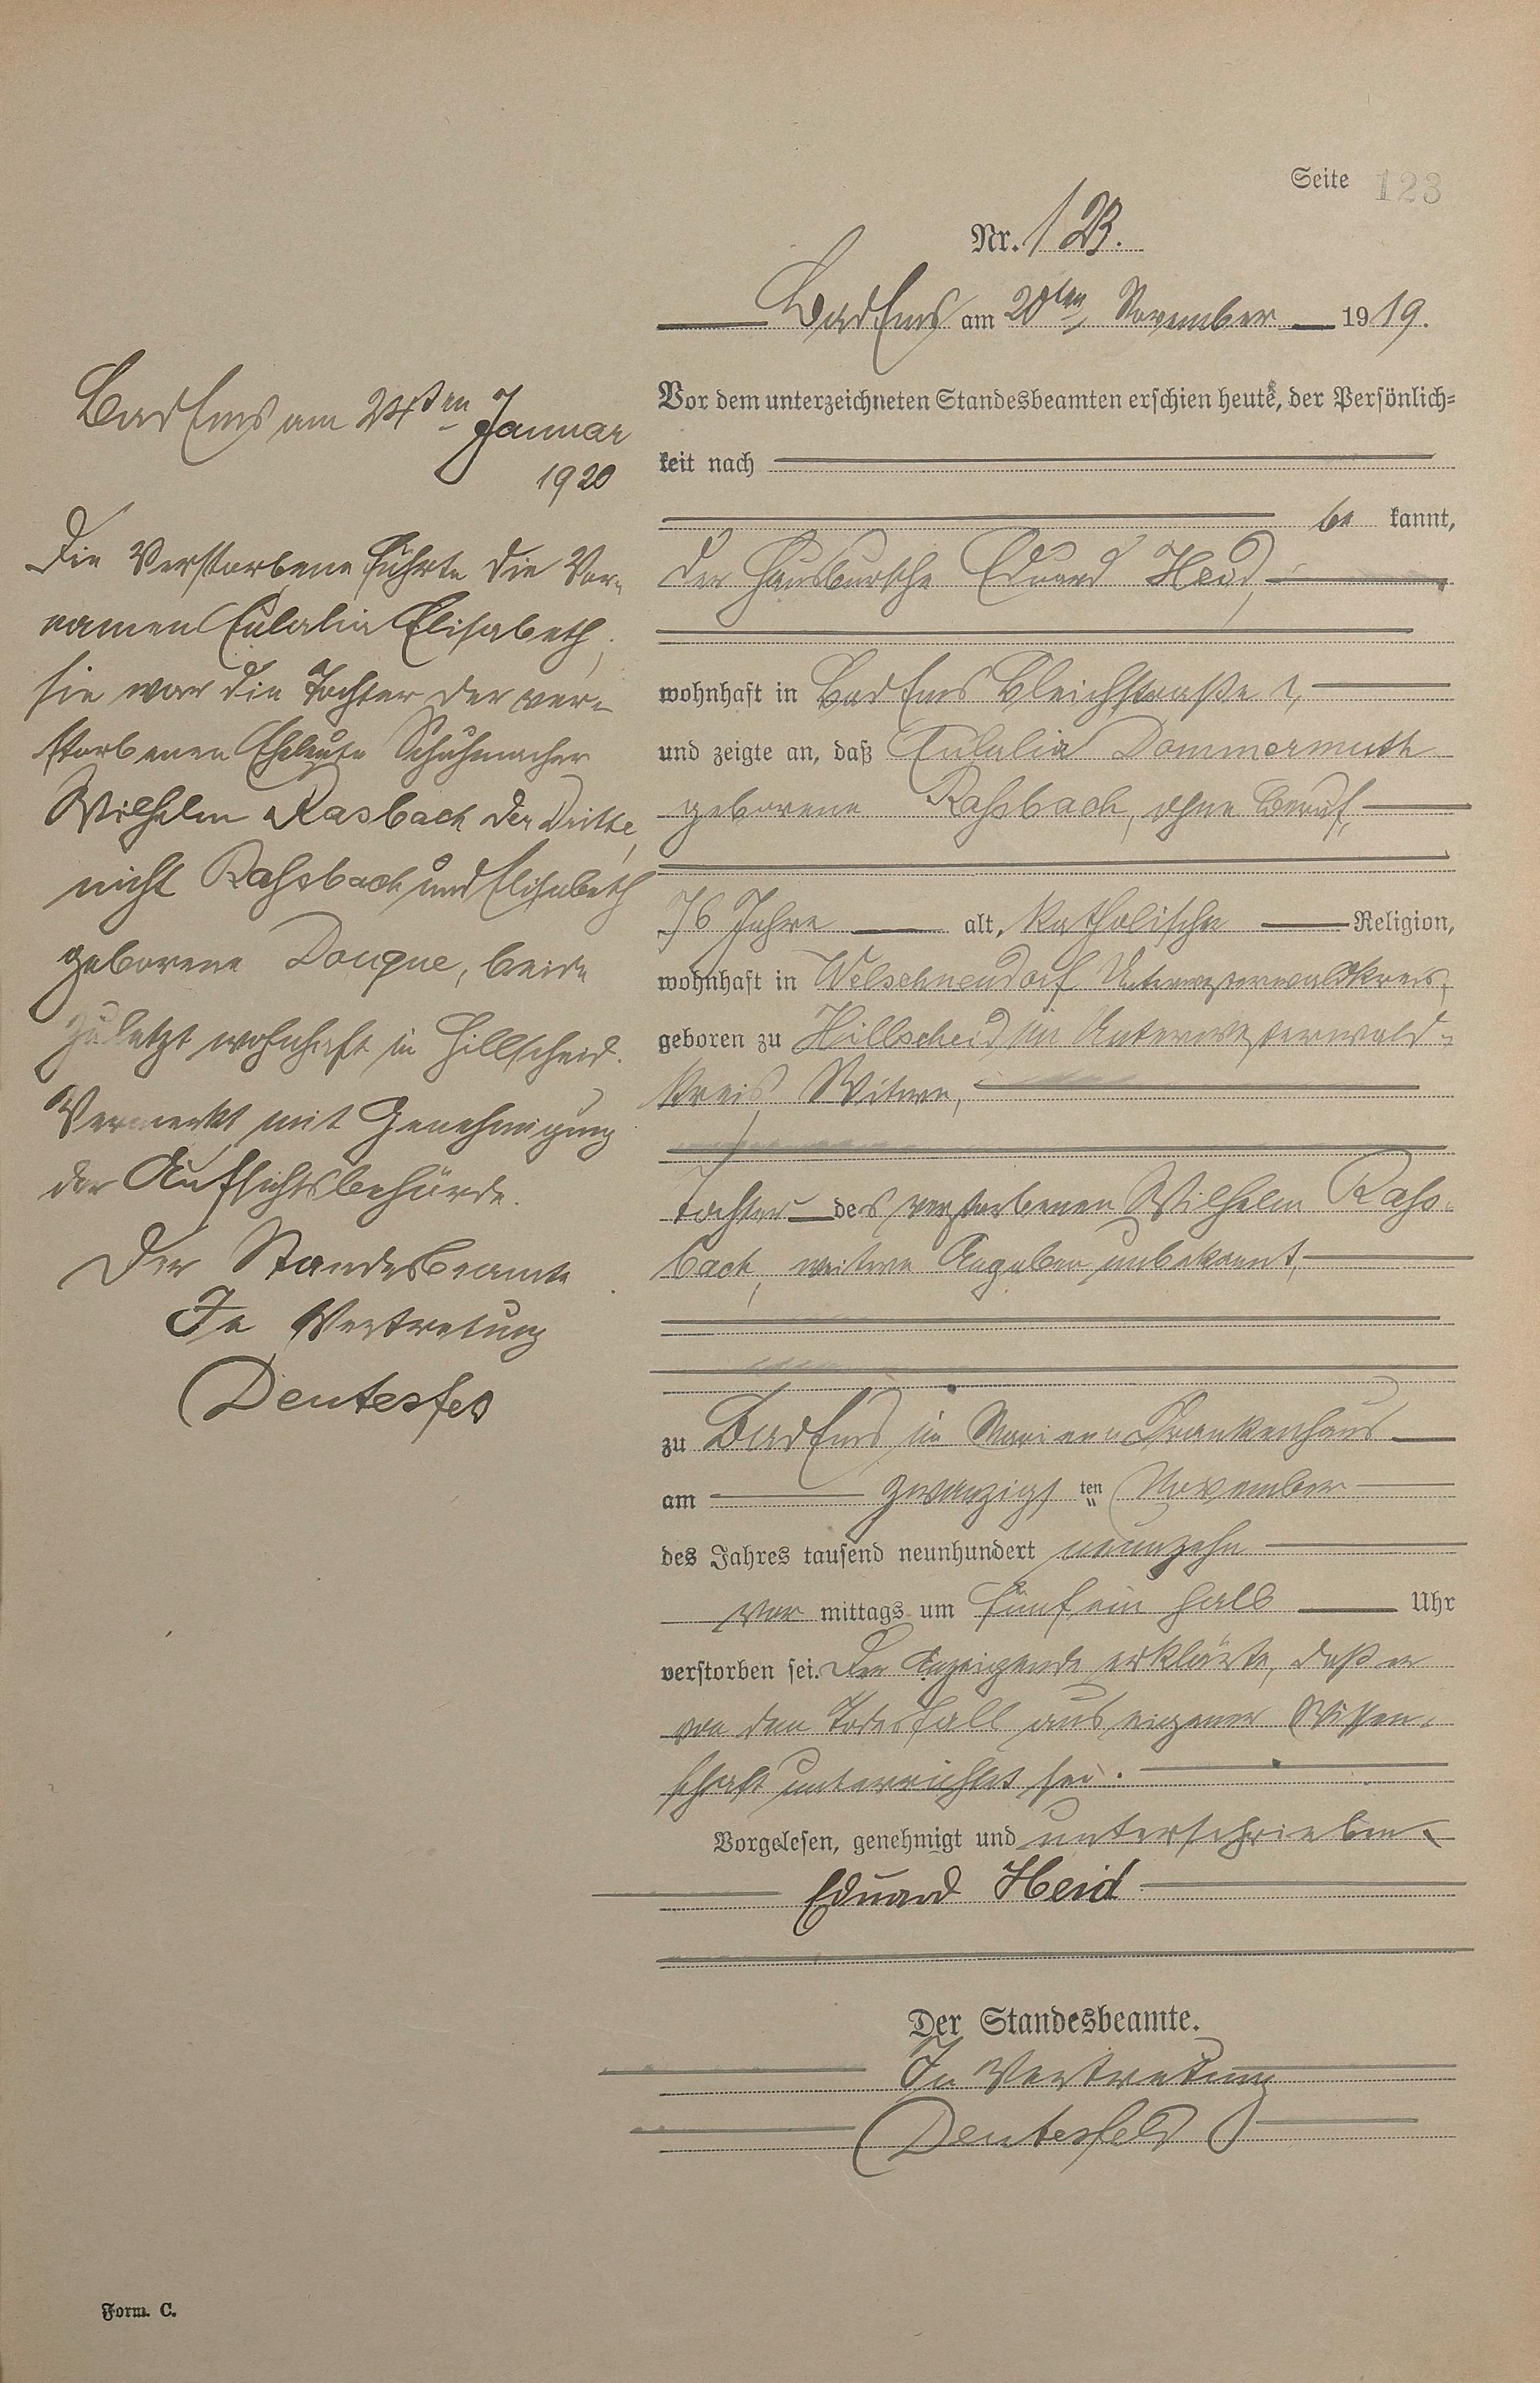 Seite 123
Nr. 123.
Bad Ems am 20ten November 1919.
Vor dem unterzeichneten Standesbeamten erschien heute, der Persönlich-
keit nach
be kannt,
der Hausbursche Eduard Heid,
wohnhaft in Bad Ems Bleichstraße
und zeigte an, daß Eulalia Dommermuth
geborene Rahsbach, ohne Beruf,
76 Jahre alt, katholischer Religion,
wohnhaft in Welschneudorf Unterwesterwaldkreis,
geboren zu Hillscheid im Unterwesterwald-
kreis, Witwe,
Tochter des verstorbenen Wilhelm Rahs-
bach, weitere Angaben unbekannt,
zu Bad Ems im Marienkrankenhaus
am zwanzigsten November
des Jahres tausend neunhundert neunzehn
vor mittags um fünf ein halb Uhr
verstorben sei. Der Anzeigende erklärte, daß er
von dem Todesfall aus eigener Wissen-
schaft unterrichtet sei.
Vorgelesen, genehmigt und unterschrieben
Eduard Heid
Der Standesbeamte.
In Vertretung
Deutesfeld
Bad Ems am 24ten Januar
1920
Die Verstorbene führte die Vor-
namen Eulalia Elisabeth,
sie war die Tochter der ver-
storbenen Eheleute Schuhmacher
Wilhelm Rasbach der Dritte,
nicht Rahsbach und Elisabeth
geborene Douque, beide
zuletzt wohnhaft in Hillscheid.
Vermerkt mit Genehmigung
der Aufsichtsbehörde.
Der Standesbeamte
In Vertretung
Deutesfeld
Form. C.